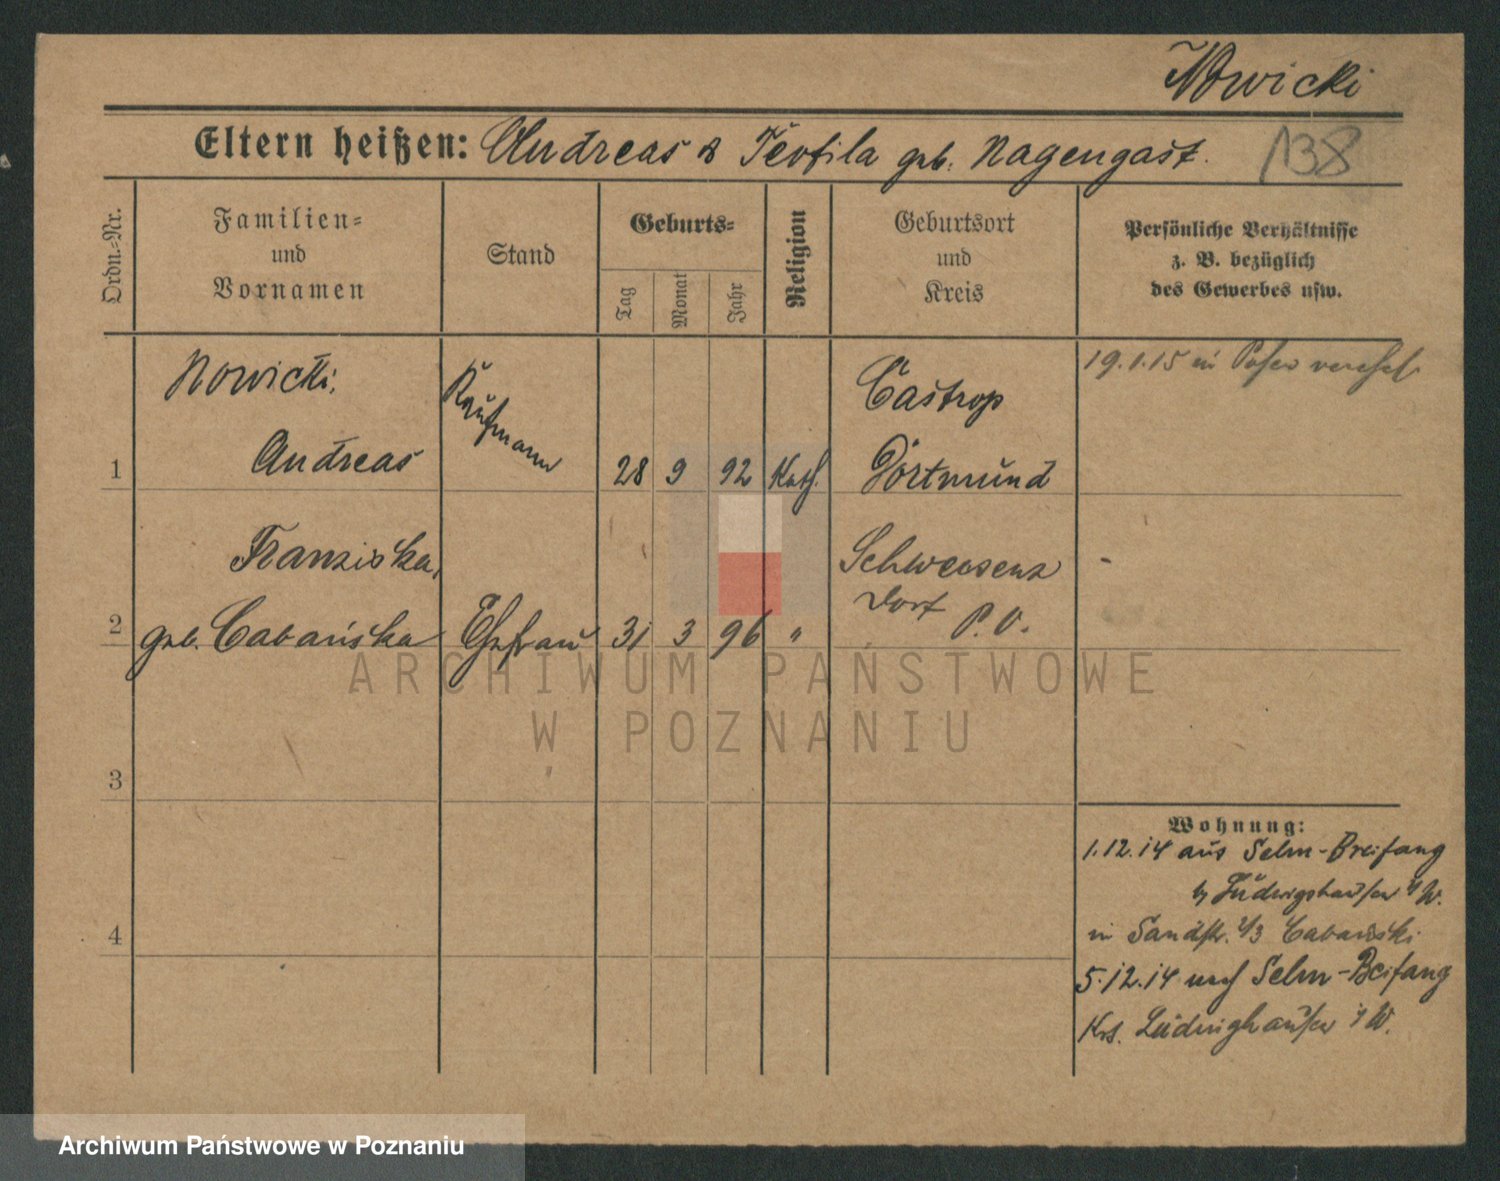 Nowicki
Eltern heißen: Andreas & Teofila geb. Nagengast.
138
Ordn.=Nr.
Familien=
und
Vornamen
Stand
Geburts=
Tag
Monat
Jahr
Religion
Geburtsort
und
Kreis
Persönliche Verhältnisse
z. B. bezüglich
des Gewerbes usw.
1
Nowicki,
Andreas
Kaufmann
28 9 92 Kath.
Castrop
Dortmund
19.1.15 in Posen verehel.
2
Franziska,
geb. Cabańska
Ehefrau
31 3 96 "
Schwersenz
Dorf P. O.
3
4
Wohnung:
1.12.14 aus Selm-Breifang
b/ Lüdwigshausen i/W.
in Sandstr. 2/3 Cabański
5.12.14 nach Selm-Beifang
Krs. Lüdinghausen i/W.
ARCHIWUM PAŃSTWOWE
W POZNANIU
Archiwum Państwowe w Poznaniu